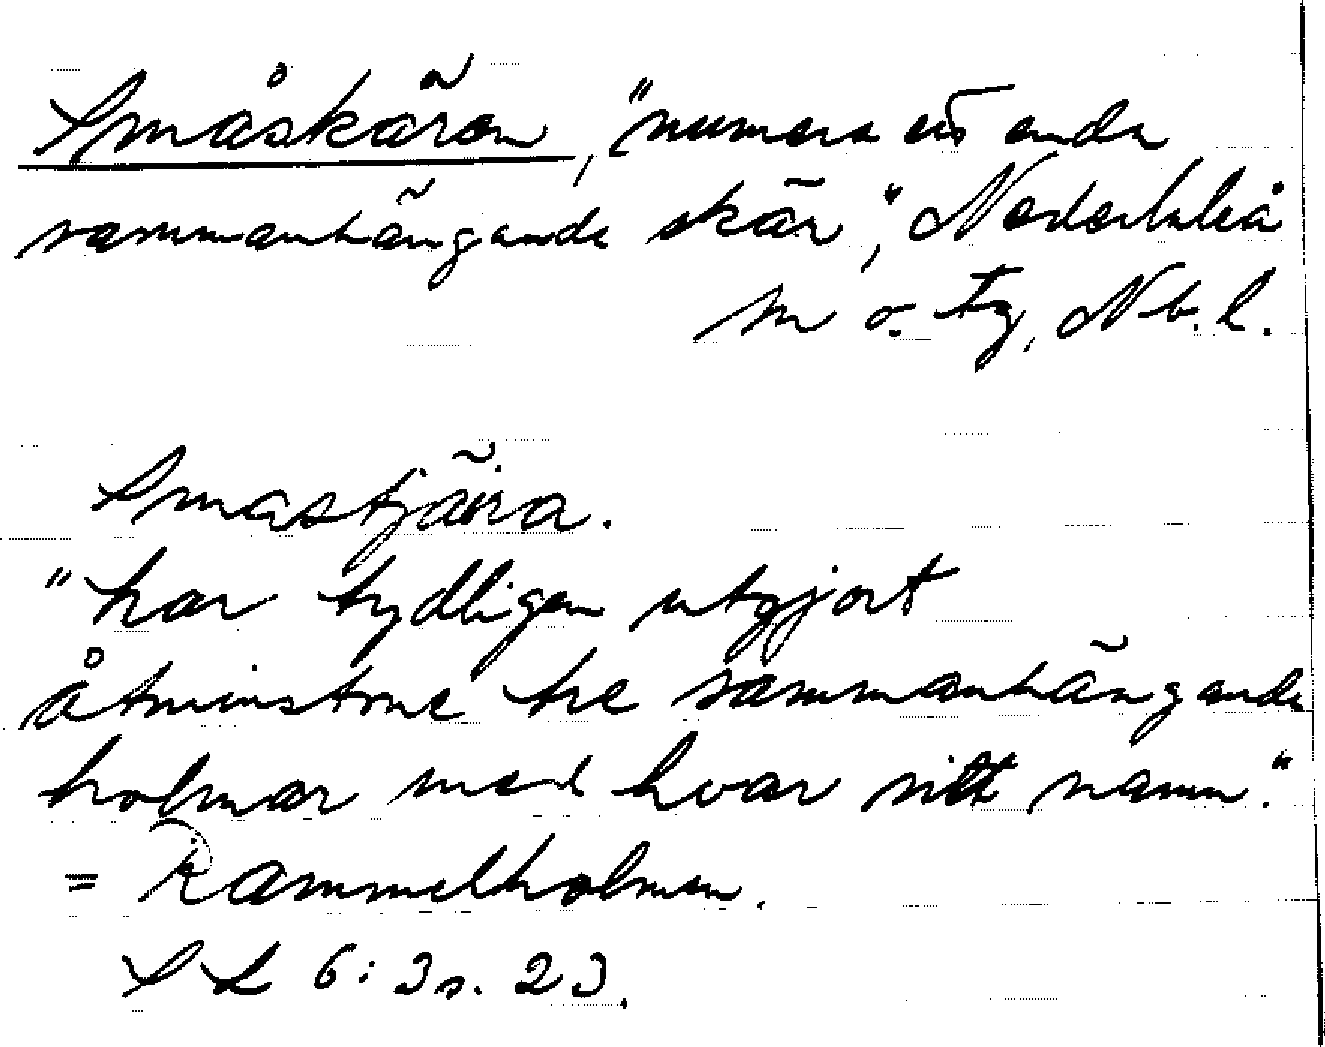 Småskären, "numera ett enda
sammanhängande skär", Nederluleå
sn o. tg, Nb. l.
Smastjära.
"har tydligen utgjort
åtminstone tre sammanhängande
holmar med hvar sitt namn."
= Rammelholmen.
SL 6:3 s. 23.